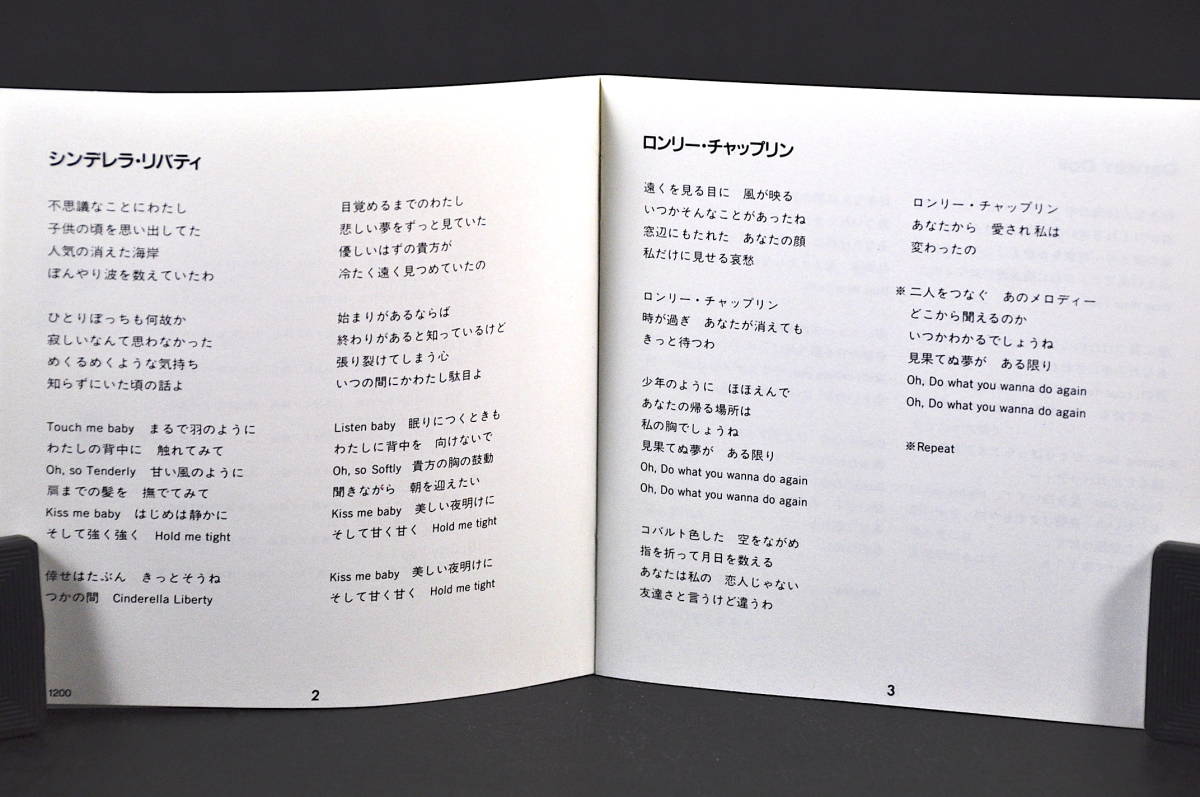 シンデレラ・リバティ
不思議なことにわたし
子供の頃を思い出してた
人気の消えた海岸
ぼんやり波を数えていたわ
ひとりぼっちも何故か
寂しいなんて思わなかった
めくるめくような気持ち
知らずにいた頃の話よ
Touch me baby　まるで羽のように
わたしの背中に　触れてみて
Oh, so Tenderly　甘い風のように
肩までの髪を　撫でてみて
Kiss me baby　はじめは静かに
そして強く強く　Hold me tight
倖せはたぶん　きっとそうね
つかの間　Cinderella Liberty
目覚めるまでのわたし
悲しい夢をずっと見ていた
優しいはずの貴方が
冷たく遠く見つめていたの
始まりがあるならば
終わりがあると知っているけど
張り裂けてしまう心
いつの間にかわたし駄目よ
Listen baby　眠りにつくときも
わたしに背中を　向けないで
Oh, so Softly　貴方の胸の鼓動
聞きながら　朝を迎えたい
Kiss me baby　美しい夜明けに
そして甘く甘く　Hold me tight
Kiss me baby　美しい夜明けに
そして甘く甘く　Hold me tight
1200
2
ロンリー・チャップリン
遠くを見る目に　風が映る
いつかそんなことがあったね
窓辺にもたれた　あなたの顔
私だけに見せる哀愁
ロンリー・チャップリン
時が過ぎ　あなたが消えても
きっと待つわ
少年のように　ほほえんで
あなたの帰る場所は
私の胸でしょうね
見果てぬ夢が　ある限り
Oh, Do what you wanna do again
Oh, Do what you wanna do again
コバルト色した　空をながめ
指を折って月日を数える
あなたは私の　恋人じゃない
友達さと言うけど違うわ
ロンリー・チャップリン
あなたから　愛され私は
変わったの
※二人をつなぐ　あのメロディー
どこから聞えるのか
いつかわかるでしょうね
見果てぬ夢が　ある限り
Oh, Do what you wanna do again
Oh, Do what you wanna do again
※Repeat
3